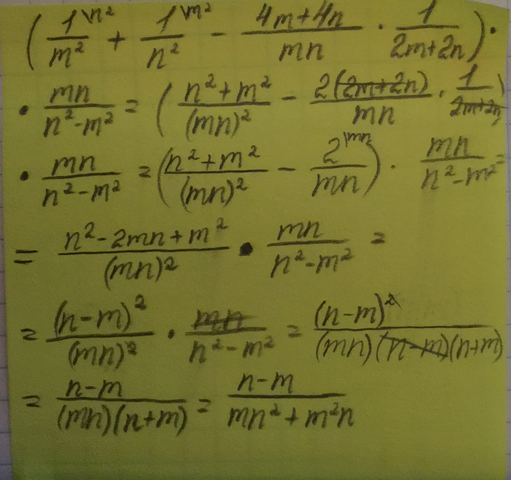 (1\n²/m² + 1\m²/n² - 4m+4n/mn · 1/2m+2n) ·
· mn/n²-m² = (n²+m²/(mn)² - 2(2m+2n)/mn · 1/2m+2n)
· mn/n²-m² = (n²+m²/(mn)² - 2\mn/mn) · mn/n²-m² =
= n²-2mn+m²/(mn)² · mn/n²-m² =
= (n-m)²/(mn)² · mn/n²-m² = (n-m)²/(mn)(n-m)(n+m)
= n-m/(mn)(n+m) = n-m/mn²+m²n